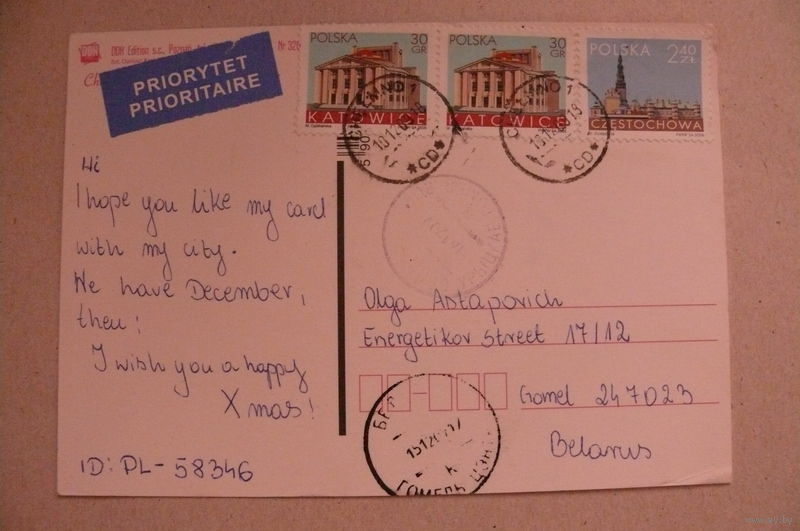 DDK Edition s.c., Poznań
Nr 320
PRIORYTET
PRIORITAIRE
POLSKA 30 GR
KATOWICE
POLSKA 30 GR
KATOWICE
POLSKA 2,40 ZŁ
CZĘSTOCHOWA
*CD*
*CD*
Hi
I hope you like my card
with my city.
We have December,
then:
I wish you a happy
Xmas!
ID: PL-58346
Olga Astapovich
Energetikov street 17/12
Gomel 247023
Belarus
ГОМЕЛЬ